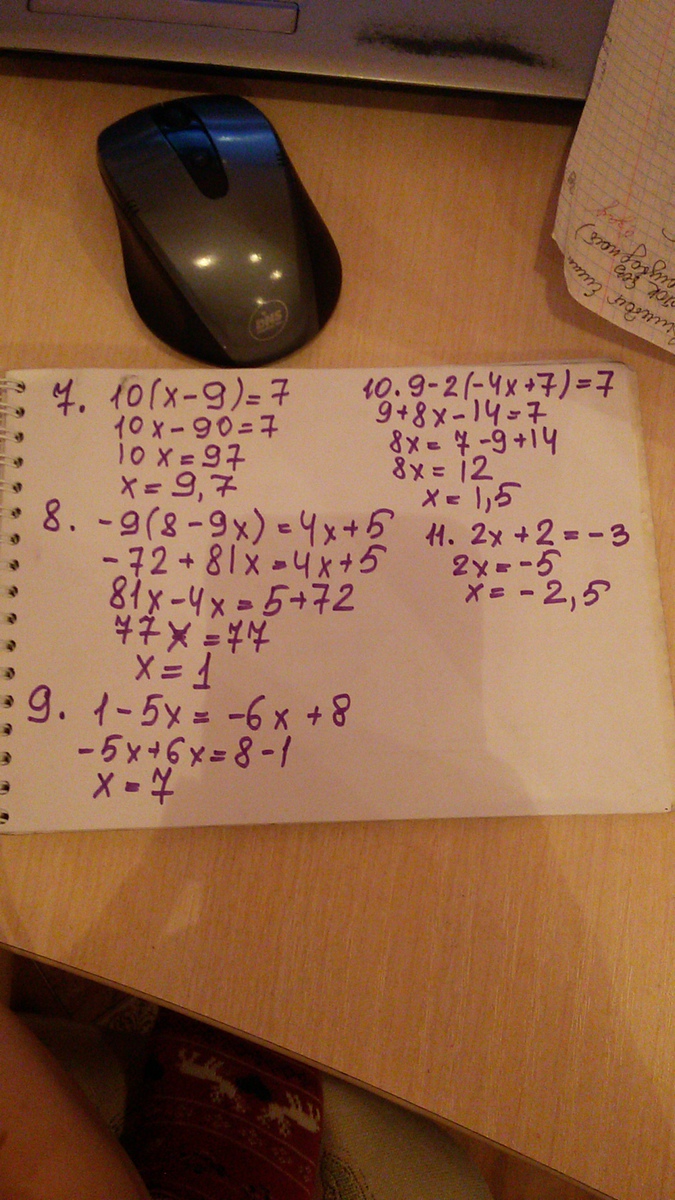 7. 10(x-9)=7
10x-90=7
10x=97
x=9,7
8. -9(8-9x)=4x+5
-72+81x=4x+5
81x-4x=5+72
77x=77
x=1
9. 1-5x=-6x+8
-5x+6x=8-1
x=7
10. 9-2(-4x+7)=7
9+8x-14=7
8x=7-9+14
8x=12
x=1,5
11. 2x+2=-3
2x=-5
x=-2,5
DNS